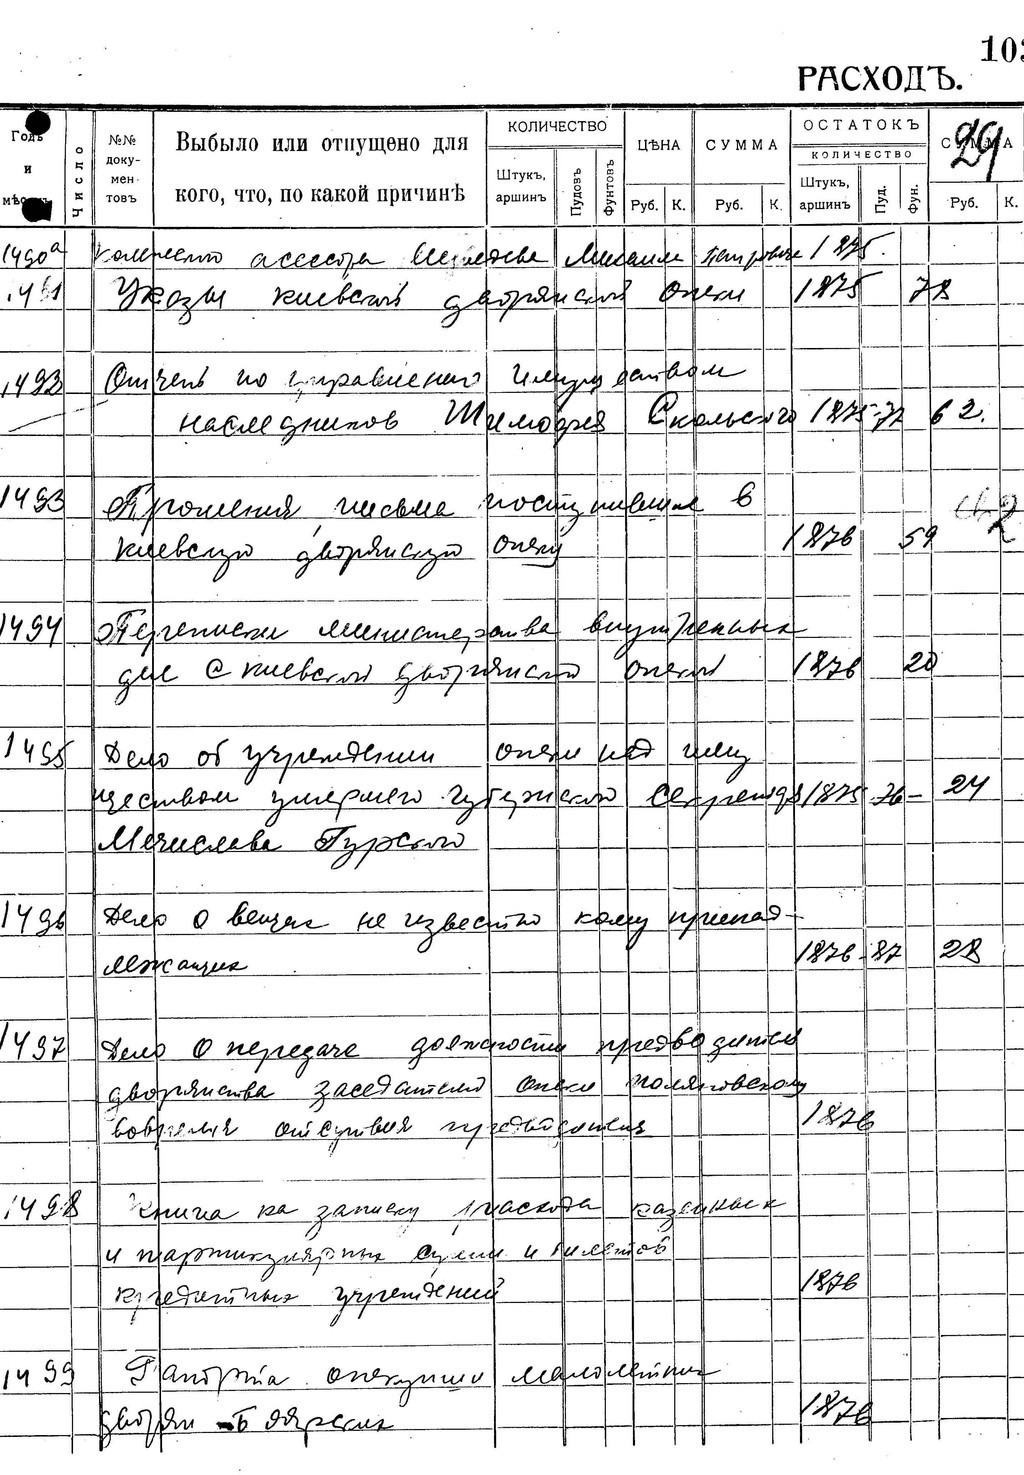 103
РАСХОДЪ.
Годъ и мѣсяцъ
Число
№№ доку-мен-товъ
Выбыло или отпущено для кого, что, по какой причинѣ
КОЛИЧЕСТВО
Штукъ, аршинъ
Пудовъ
Фунтовъ
ЦѢНА
Руб. К.
СУММА
Руб. К.
ОСТАТОКЪ
КОЛИЧЕСТВО
Штукъ, аршинъ
Пуд.
Фун.
СУММА
Руб. К.
29
1490а асессора Михаила Петровича 1875.
1491 Указы киевской дворянской опеки 1875 78
1493 Отчет по управлению имуществом
наследников Шимодрея Скольского 1875-77 62.
1493 Прошения, письма поступившие в
киевскую дворянскую опеку 1876 59
2
1494 Переписки министерства внутренных
дел с киевской дворянской опекой 1876 20
1495 Дело об учреждении опеки над иму
ществом умершего губернского секретаря 1875-76- 24
Мечислава Гурского
1496 Дело о вещах не известно кому принад-
лежащих 1876-87 28
1497 Дело о передаче должности предводителя
дворянства заседателю опеки
вовремя отсутвия предводителя 1876
1498 Книга на записку расхода казенных
и партикулярных сумм и билетов
кредитных учреждений 1876
1499 Рапорта опекунши малолетних
дворян 1876